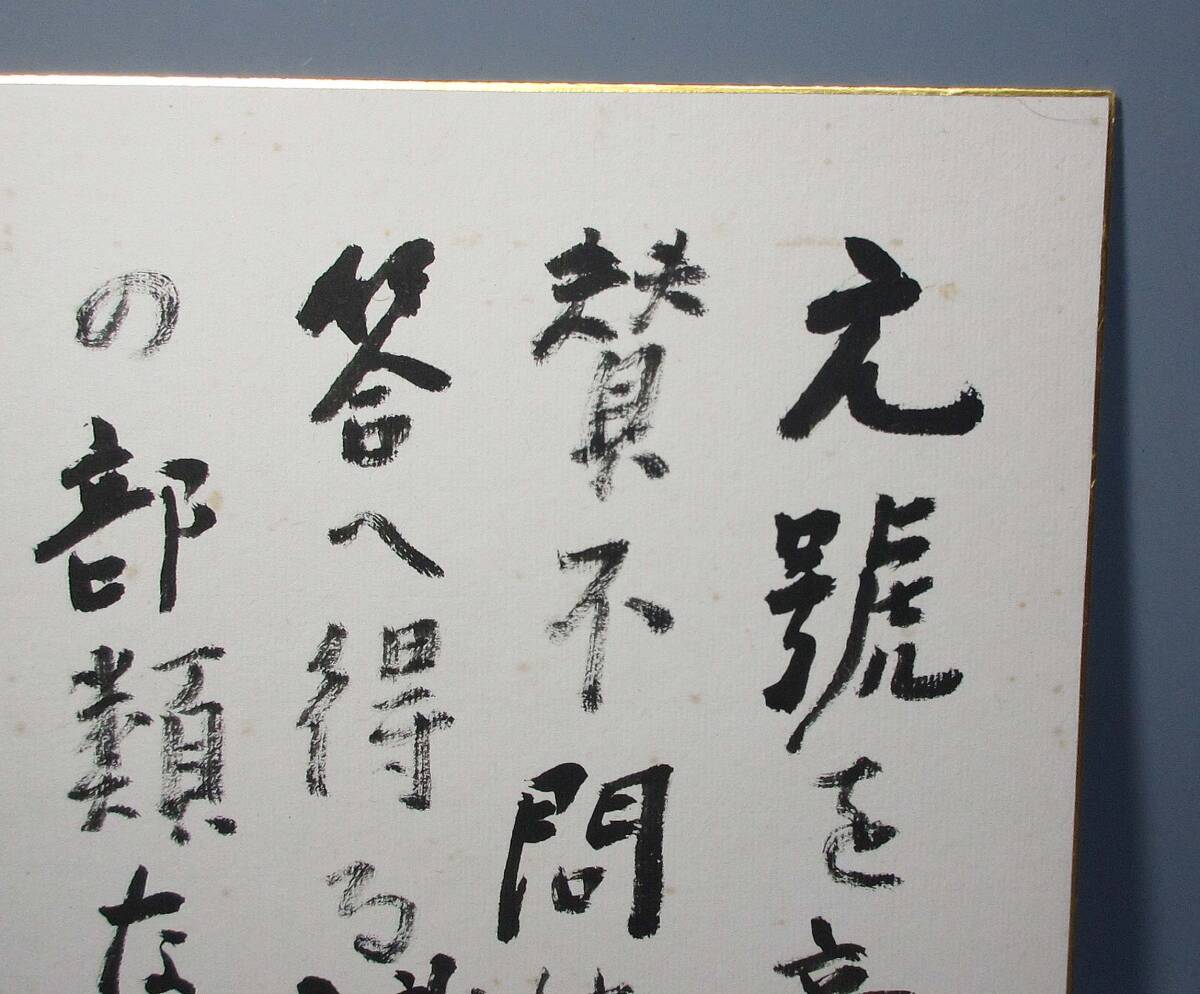 元號を
賛不問
答へ得る
の部類